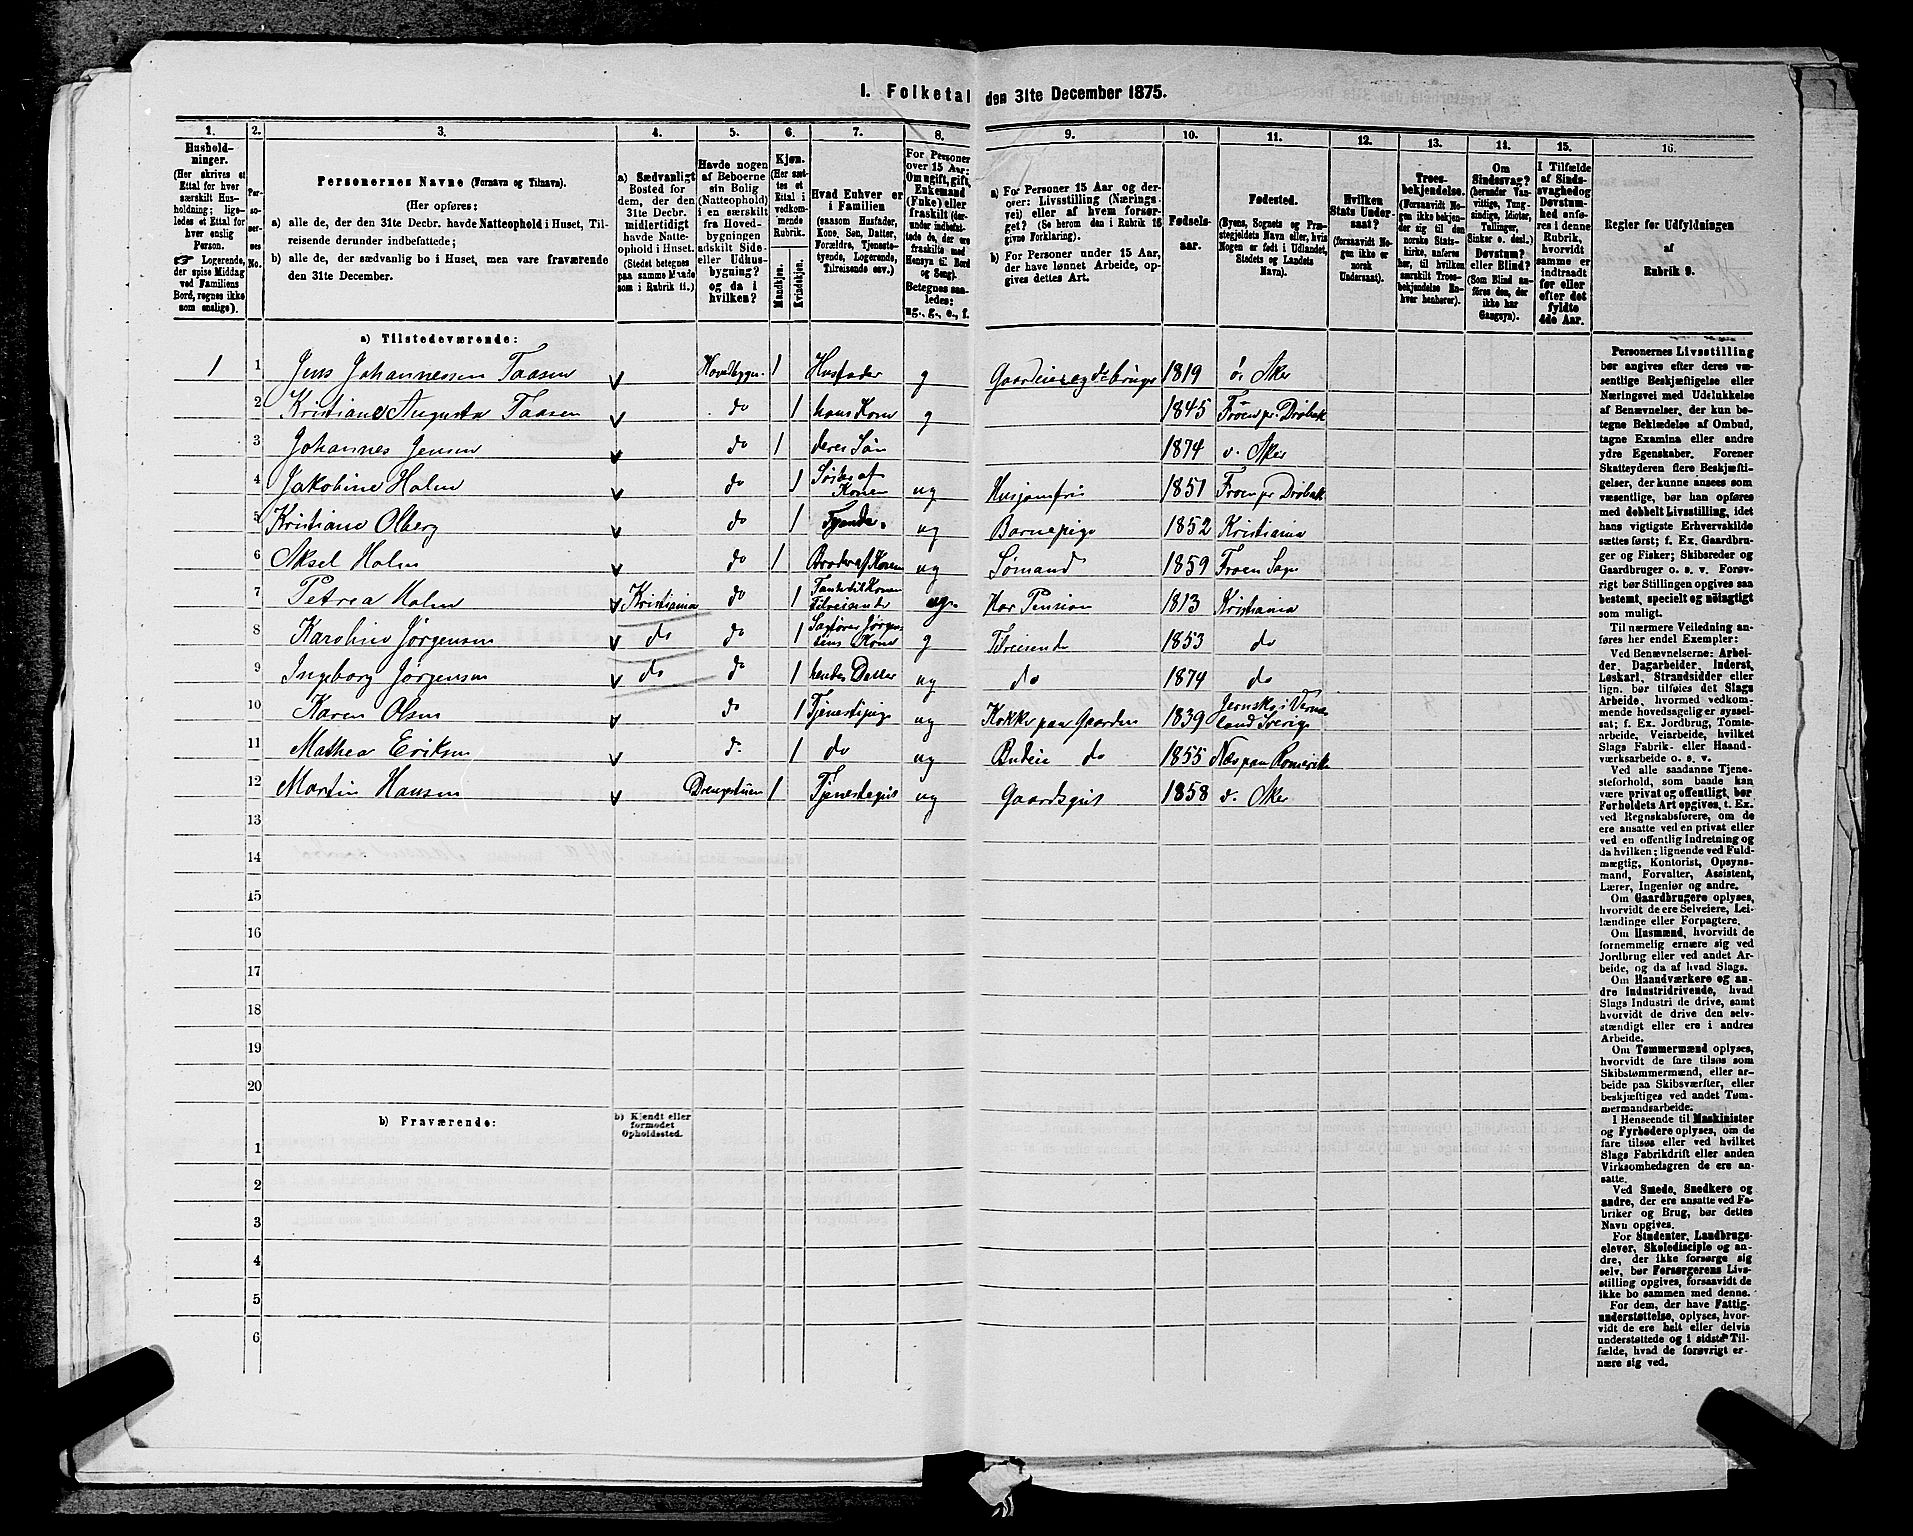 I. Folketal den 31te December 1875.
1. 2. 3. 4. 5. 6. 7. 8. 9. 10. 11. 12. 13. 14. 15. 16.
Hushold-
ninger.
(Her skrives et
Ettal for hver
særskilt Hus-
holdning; lige-
ledes et Ettal for
hver enslig
Person.
☞ Logerende,
der spise Middag
ved Familiens
Bord, regnes ikke
som enslige).
Per-
so-
ner-
nes
No.
Personernes Navne (Fornavn og Tilnavn).
(Her opføres:
a) alle de, der den 31te Decbr. havde Natteophold i Huset, Til-
reisende derunder indbefattede;
b) alle de, der sædvanlig bo i Huset, men vare fraværende
den 31te December.
a) Sædvanligt
Bosted for
dem, der den
31te Decbr.
midlertidigt
havde Natte-
ophold i Huset.
(Stedet betegnes
paa samme Maade
som i Rubrik 11.)
Havde nogen
af Beboerne
sin Bolig
(Natteophold)
i en særskilt
fra Hoved-
bygningen
adskilt Side-
eller Udhus-
bygning?
og da i
hvilken?
Kjøn.
(Her sæt-
tes et
Ettal i
vedkom-
mende
Rubrik.
Mandkjøn.
Kvindekjøn.
Hvad Enhver er
i Familien
(saasom Husfader,
Kone, Søn, Datter,
Forældre, Tjeneste-
tyende, Logerende,
Tilreisende osv.)
For Personer
over 15 Aar:
Om ugift, gift,
Enkemand
(Enke) eller
fraskilt (der-
under indbefat-
tede de, der ere
fraskilte med
Hensyn til Bord
og Seng).
Betegnes saa-
ledes:
ug., g., e., f.
a) For Personer 15 Aar og der-
over: Livsstilling (Nærings-
vei) eller af hvem forsør-
get? (Se herom den i Rubrik 16
givne Forklaring).
b) For Personer under 15 Aar,
der have lønnet Arbeide, op-
gives dettes Art.
Fødsels-
aar.
Fødested.
(Byens, Sognets og Præ-
stegjeldets Navn eller, hvis
Nogen er født i Udlandet,
Stedets og Landets
Navn).
Hvilken
Stats Under-
saat?
(forsaavidt No-
gen ikke er
norsk
Undersaat).
Troes-
bekjendelse.
(Forsaavidt No-
gen ikke bekjen-
der sig til den
norske Stats-
kirke, anføres
her, til hvilken
særskilt Troes-
bekjendelse En-
hver henhører).
Om
Sindssvag?
(herunder Van-
vittige, Tung-
sindige, Idioter,
Tullinger,
Sinker o. desl.)
Døvstum?
eller Blind?
(Som Blind an-
føres den, der
ikke har
Gangsyn).
I Tilfælde
af Sinds-
svaghed og
Døvstum-
hed anfø-
res i denne
Rubrik,
hvorvidt
samme er
indtraadt
før eller
efter det
fyldte
4de Aar.
Regler for Udfyldningen
af
Rubrik 9.
a) Tilstedeværende:
1 1 Jens Johannessen Taasen v Hovedbygn. 1 Husfader g Gaardeier og do bruger 1819 ø. Aker
2 Kristiane Augusta Taasen v do 1 hans Kone g 1845 Froen pr. Drøbak
3 Johannes Jensen v do 1 deres Søn 1874 v. Aker
4 Jakobine Holm v do 1 Søster af Konen ug Husjomfru 1851 Froen pr Drøbak
5 Kristiane Olberg do 1 Tyende. ug Barnepige 1852 Kristiania
6 Aksel Holm do 1 Broder af Konen ug Sømand 1859 Froen Sogn
7 Petrea Holm v Kristiania do 1 Tante til Konen Tilreisende ug. Har Pension 1813 Kristiania
8 Karoline Jørgensen v do do 1 Jørgensens Kone g Tilreisende 1853 do
9 Ingeborg Jørgensen v do do 1 hendes Datter ug do 1874 do
10 Karen Olsen v do 1 Tjenestepige ug Kokke paa Gaarden 1839 i Vermeland Sverige
11 Mathea Eriksen v do 1 do ug Budeie do 1855 Næs paa Romerike
12 Martin Hansen v Drengestuen 1 Tjenestegut ug Gaardsgut 1858 v. Aker
13
14
15
16
17
18
19
20
b) Fraværende:
b) Kjendt eller
formodet
Opholdssted.
1
2
3
4
5
6
Personernes Livsstilling
bør angives efter deres væ-
sentlige Beskjæftigelse eller
Næringsvei med Udelukkelse
af Benævnelser, der kun be-
tegne Beklædelse af Ombud,
tagne Examina eller andre
ydre Egenskaber. Forener
Skatteyderen flere Beskjæfti-
gelser, der kunne ansees som
væsentlige, bør han opføres
med dobbelt Livsstilling, idet
hans vigtigste Erhvervskilde
sættes først; f. Ex. Gaardbru-
ger og Fisker; Skibsreder og
Gaardbruger o. s. v. Forøv-
rigt bør Stillingen opgives saa
bestemt, specielt og nöiagtigt
som muligt.
Til nærmere Veiledning an-
føres her endel Exempler:
Ved Benævnelserne: Arbei-
der, Dagarbeider, Inderst,
Løskarl, Strandsidder eller
lign. bør tilføies det Slags
Arbeide, hvormed vedkom-
mende hovedsagelig er syssel-
sat; f. Ex. Jordbrug, Tomte-
arbeide, Veiarbeide, hvilket
Slags Fabrik- eller Haand-
værksarbeide o. s. v.
Ved alle saadanne Tjene-
steforhold, som baade kan
være privat og offentligt, bør
Forholdets Art opgives, t. Ex.
ved Regnskabsførere, om de
ere ansatte ved en privat eller
ved en offentlig Indretning og
da hvilken; lignende ved Fuld-
mægtig, Kontorist, Opsyns-
mand, Forvalter, Assistent,
Lærer, Ingeniør og andre.
Om Gaardbrugere oplyses,
hvorvidt de ere Selveiere, Lei-
lændinge eller Forpagtere.
Om Husmænd, hvorvidt de
fornemmelig ernære sig ved
Jordbrug eller ved andet Ar-
beide, og da af hvad Slags.
Om Haandværkere og an-
dre Industridrivende, hvad
Slags Industri de drive, samt
hvorvidt de drive den selv-
stændigt eller ere i andres
Arbeide.
Om Tømmermænd oplyses,
hvorvidt de fare tilsøs som
Skibstømmermænd, eller ar-
beide paa Skibsværfter, eller
beskjæftiges ved andet Tøm-
mermandsarbeide.
I Henseende til Maskinister
og Fyrbødere oplyses, om de
fare tilsøs eller ved hvilket
Slags Fabrikdrift eller anden
Virksomhedsgren de ere an-
satte.
Ved Smede, Snedkere og
andre, der ere ansatte ved Fa-
briker og Brug, bør dettes
Navn opgives.
For Studenter, Landbrugs-
elever, Skoledisciple og an-
dre, der ikke forsørge sig
selv, bør Forsørgerens Livs-
stilling opgives, forsaavidt de
ikke bo sammen med denne.
For dem, der have Fattig-
understøttelse, oplyses, hvor-
vidt de ere helt eller delvis
understøttede og i sidste Til-
fælde, hvad de forøvrigt er-
nære sig ved.